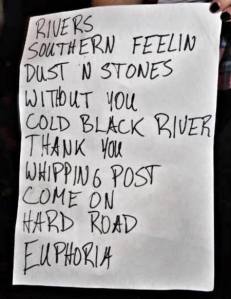 RIVERS
SOUTHERN FEELIN
DUST N STONES
WITHOUT YOU
COLD BLACK RIVER
THANK YOU
WHIPPING POST
COME ON
HARD ROAD
EUPHORIA